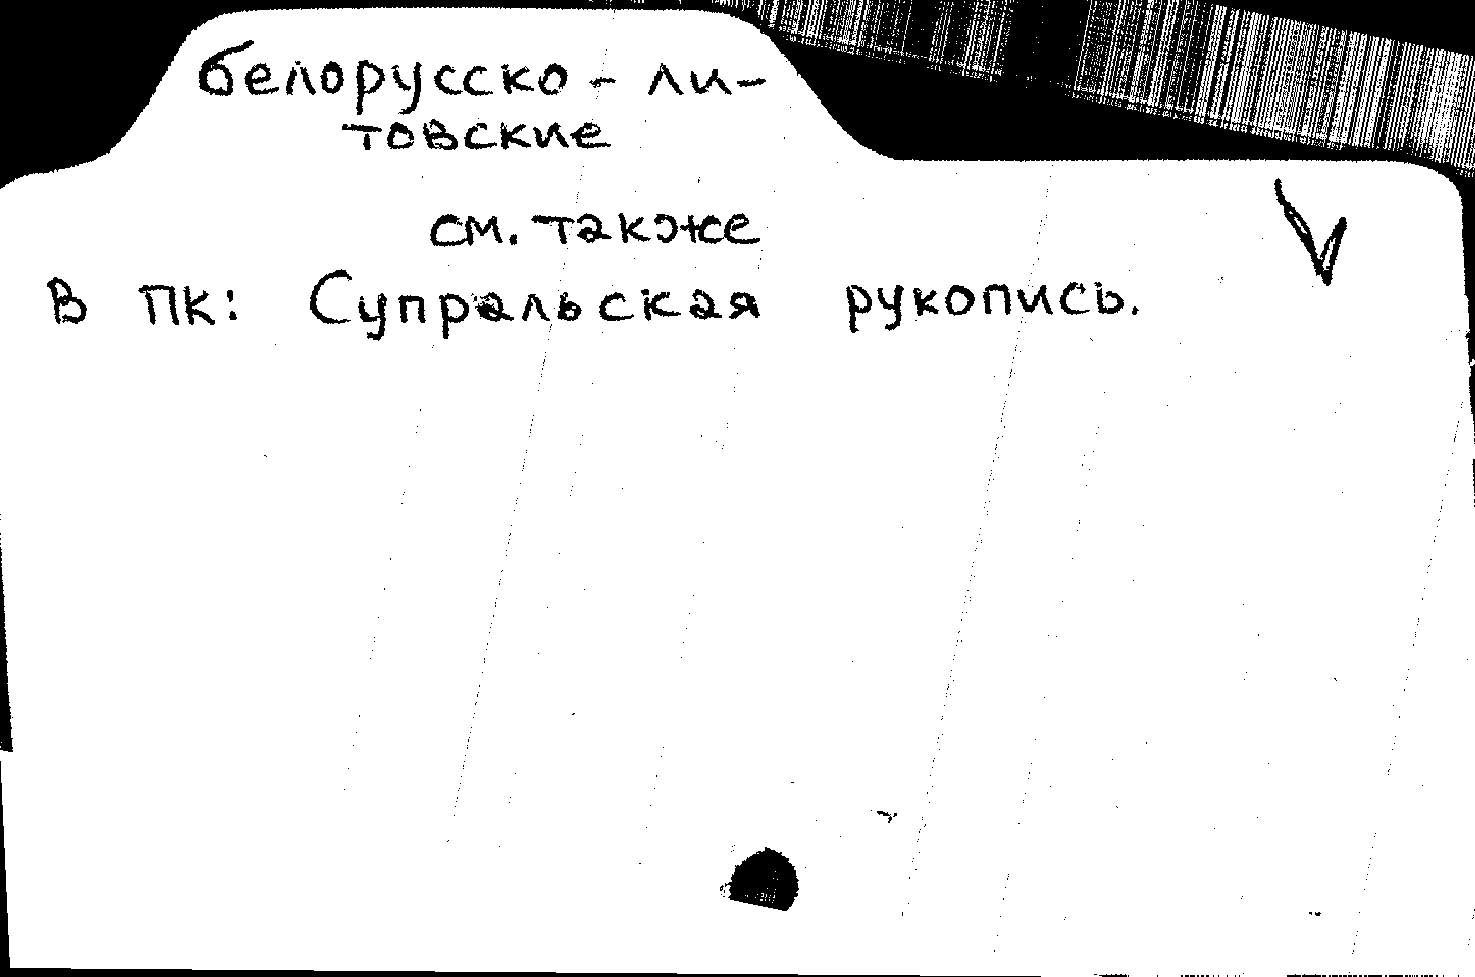 белорусско-ли-
товские
см. также
В ПК: Супральская рукопись.